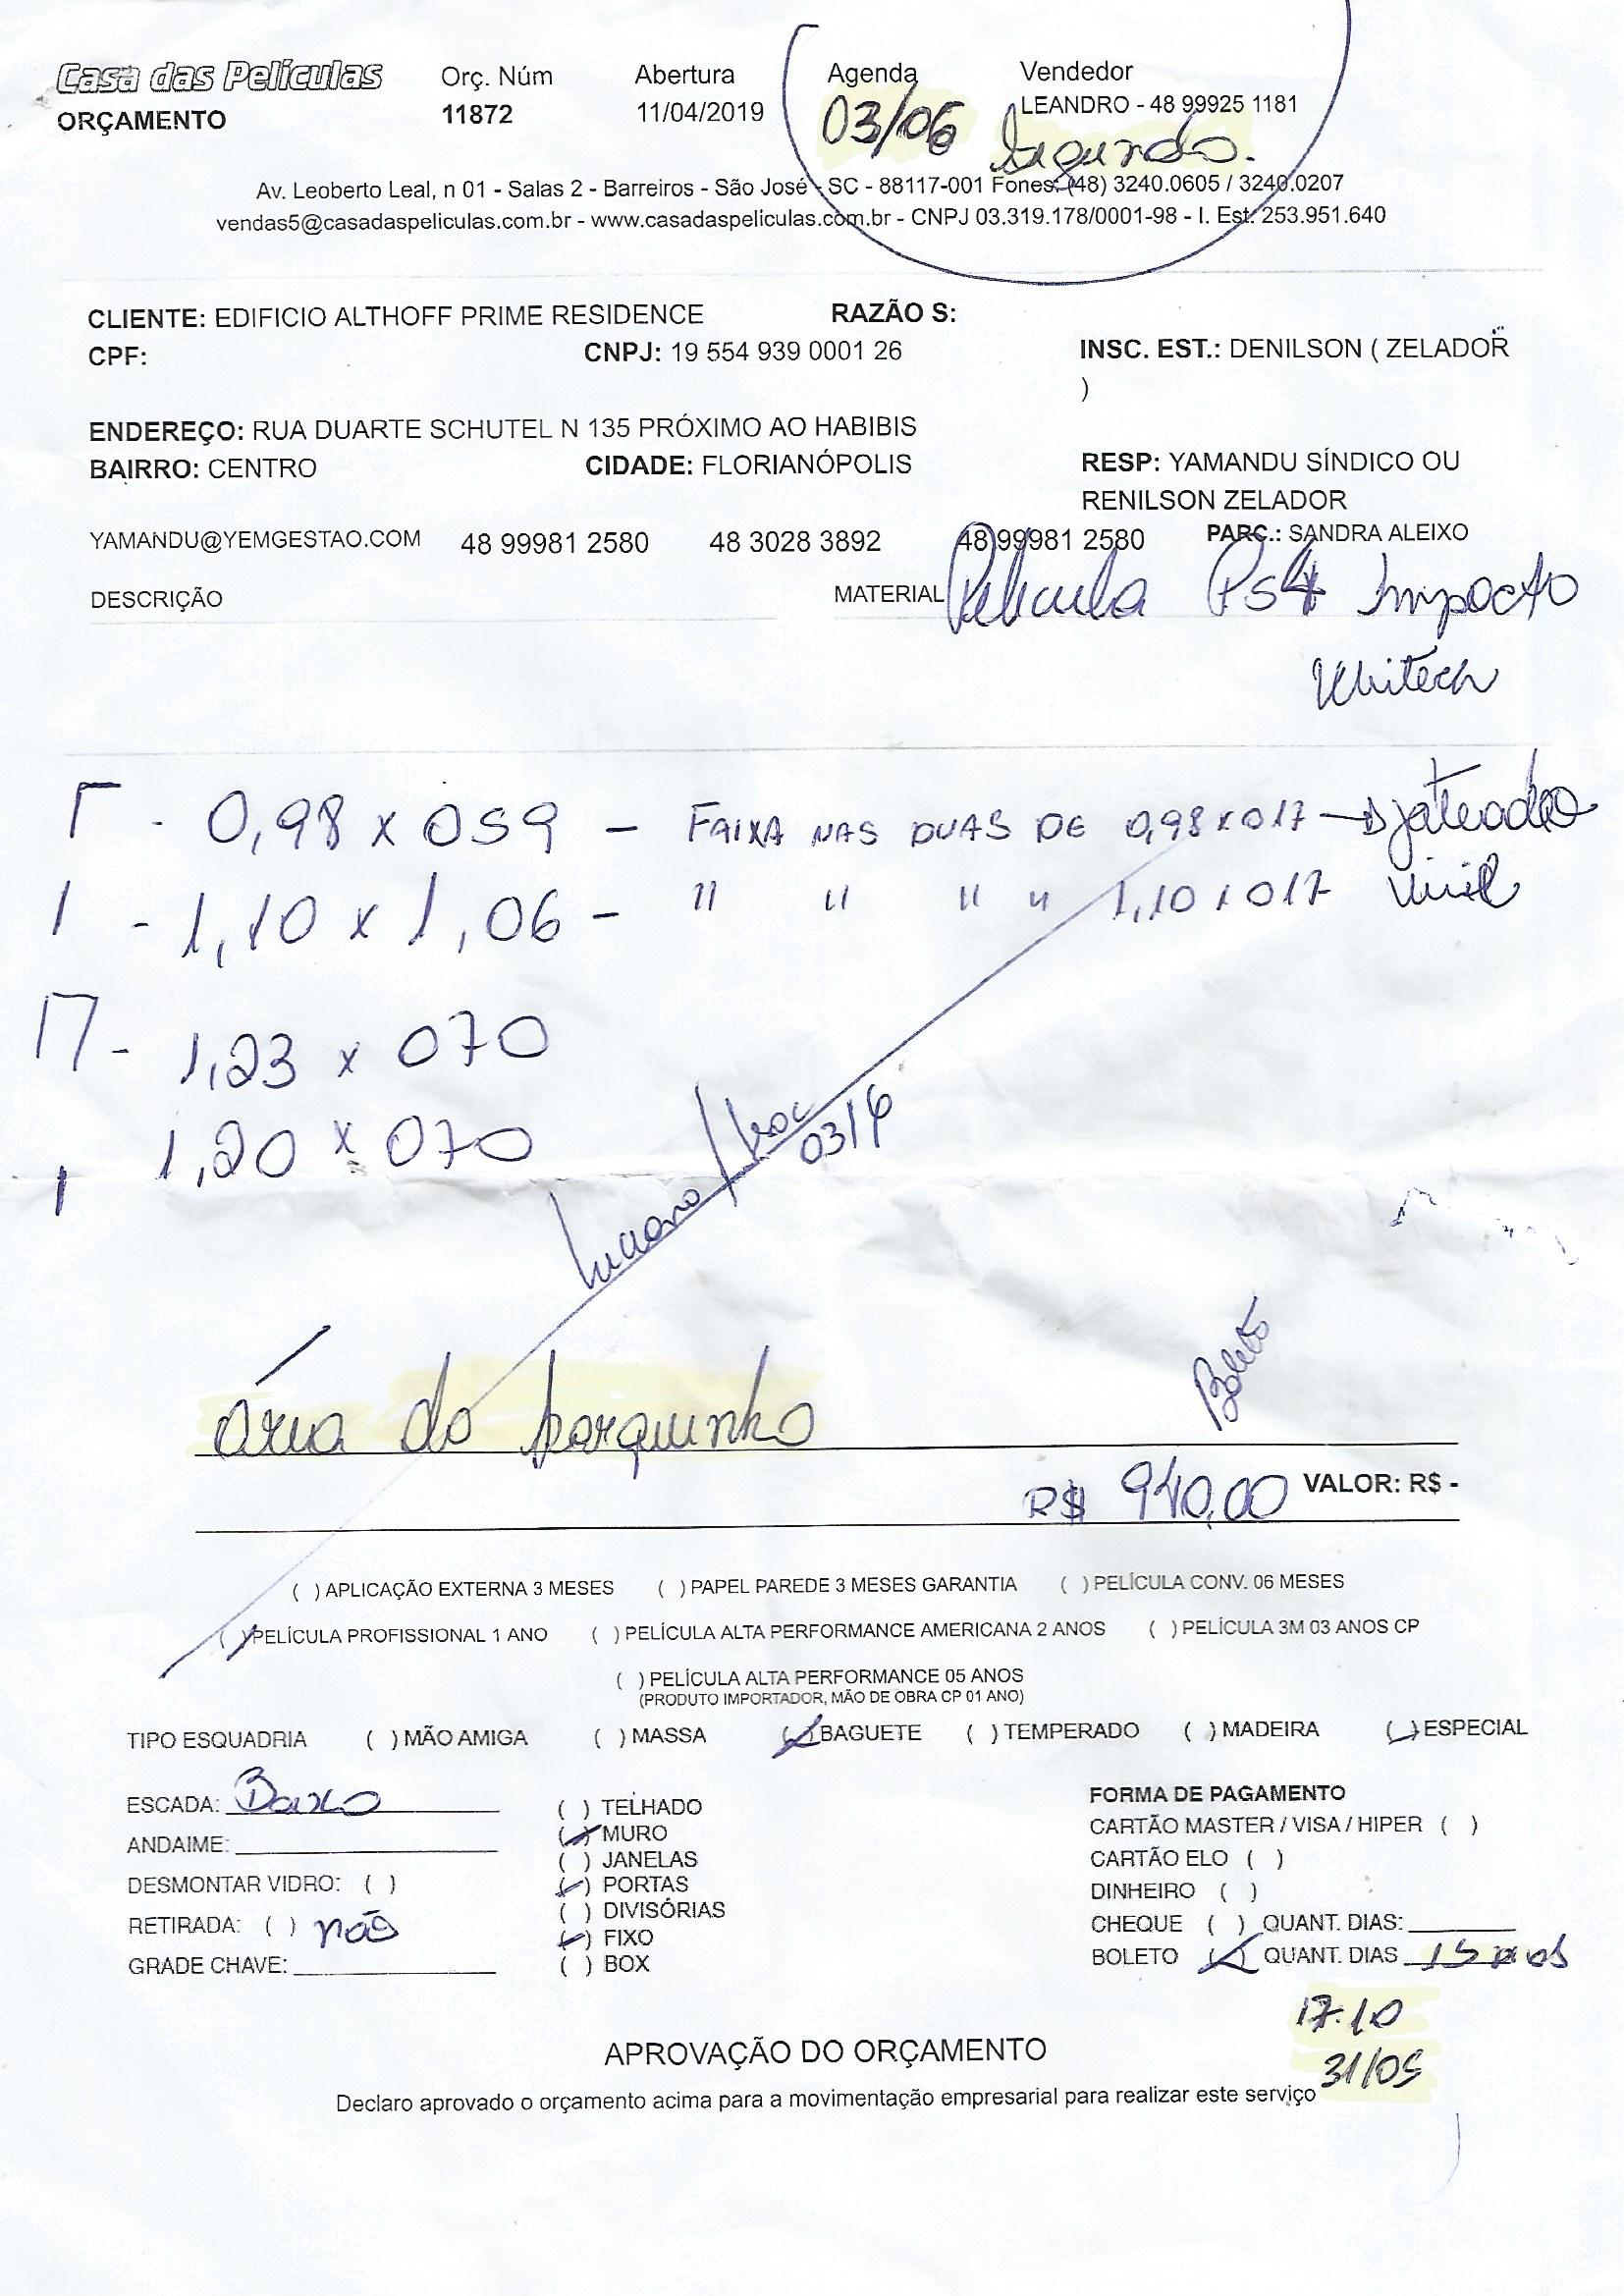 Casa das Películas Orç. Núm Abertura Agenda Vendedor
ORÇAMENTO 11872 11/04/2019 03/06 LEANDRO - 48 99925 1181
Segunda.
Av. Leoberto Leal, n 01 - Salas 2 - Barreiros - São José - SC - 88117-001 Fones: (48) 3240.0605 / 3240.0207
vendas5@casadaspeliculas.com.br - www.casadaspeliculas.com.br - CNPJ 03.319.178/0001-98 - I. Est: 253.951.640
CLIENTE: EDIFICIO ALTHOFF PRIME RESIDENCE RAZÃO S:
CPF: CNPJ: 19 554 939 0001 26 INSC. EST.: DENILSON ( ZELADOR
)
ENDEREÇO: RUA DUARTE SCHUTEL N 135 PRÓXIMO AO HABIBIS
BAIRRO: CENTRO CIDADE: FLORIANÓPOLIS RESP: YAMANDU SÍNDICO OU
RENILSON ZELADOR
YAMANDU@YEMGESTAO.COM 48 99981 2580 48 3028 3892 48 99981 2580 PARC.: SANDRA ALEIXO
DESCRIÇÃO MATERIAL Pelicula Ps4 Impacto
- 0,98 x 059 - FAIXA NAS DUAS DE 0,98 x 017 Jateado
1 - 1,10 x 1,06 - " " " " 1,10 x 017 Vinil
- 1,23 x 070
1,20 x 070
Luciano /
03/6
Boleto
área do parquinho
R$ 940,00 VALOR: R$ -
( ) APLICAÇÃO EXTERNA 3 MESES ( ) PAPEL PAREDE 3 MESES GARANTIA ( ) PELÍCULA CONV. 06 MESES
( ) PELÍCULA PROFISSIONAL 1 ANO ( ) PELÍCULA ALTA PERFORMANCE AMERICANA 2 ANOS ( ) PELÍCULA 3M 03 ANOS CP
( ) PELÍCULA ALTA PERFORMANCE 05 ANOS
(PRODUTO IMPORTADOR, MÃO DE OBRA CP 01 ANO)
TIPO ESQUADRIA ( ) MÃO AMIGA ( ) MASSA ( ) BAGUETE ( ) TEMPERADO ( ) MADEIRA ( ) ESPECIAL
ESCADA: Baixo
ANDAIME:
DESMONTAR VIDRO: ( )
RETIRADA: ( ) não
GRADE CHAVE:
( ) TELHADO
( ) MURO
( ) JANELAS
( ) PORTAS
( ) DIVISÓRIAS
( ) FIXO
( ) BOX
FORMA DE PAGAMENTO
CARTÃO MASTER / VISA / HIPER ( )
CARTÃO ELO ( )
DINHEIRO ( )
CHEQUE ( ) QUANT. DIAS:
BOLETO ( ) QUANT. DIAS 15
17.10
31/05
APROVAÇÃO DO ORÇAMENTO
Declaro aprovado o orçamento acima para a movimentação empresarial para realizar este serviço